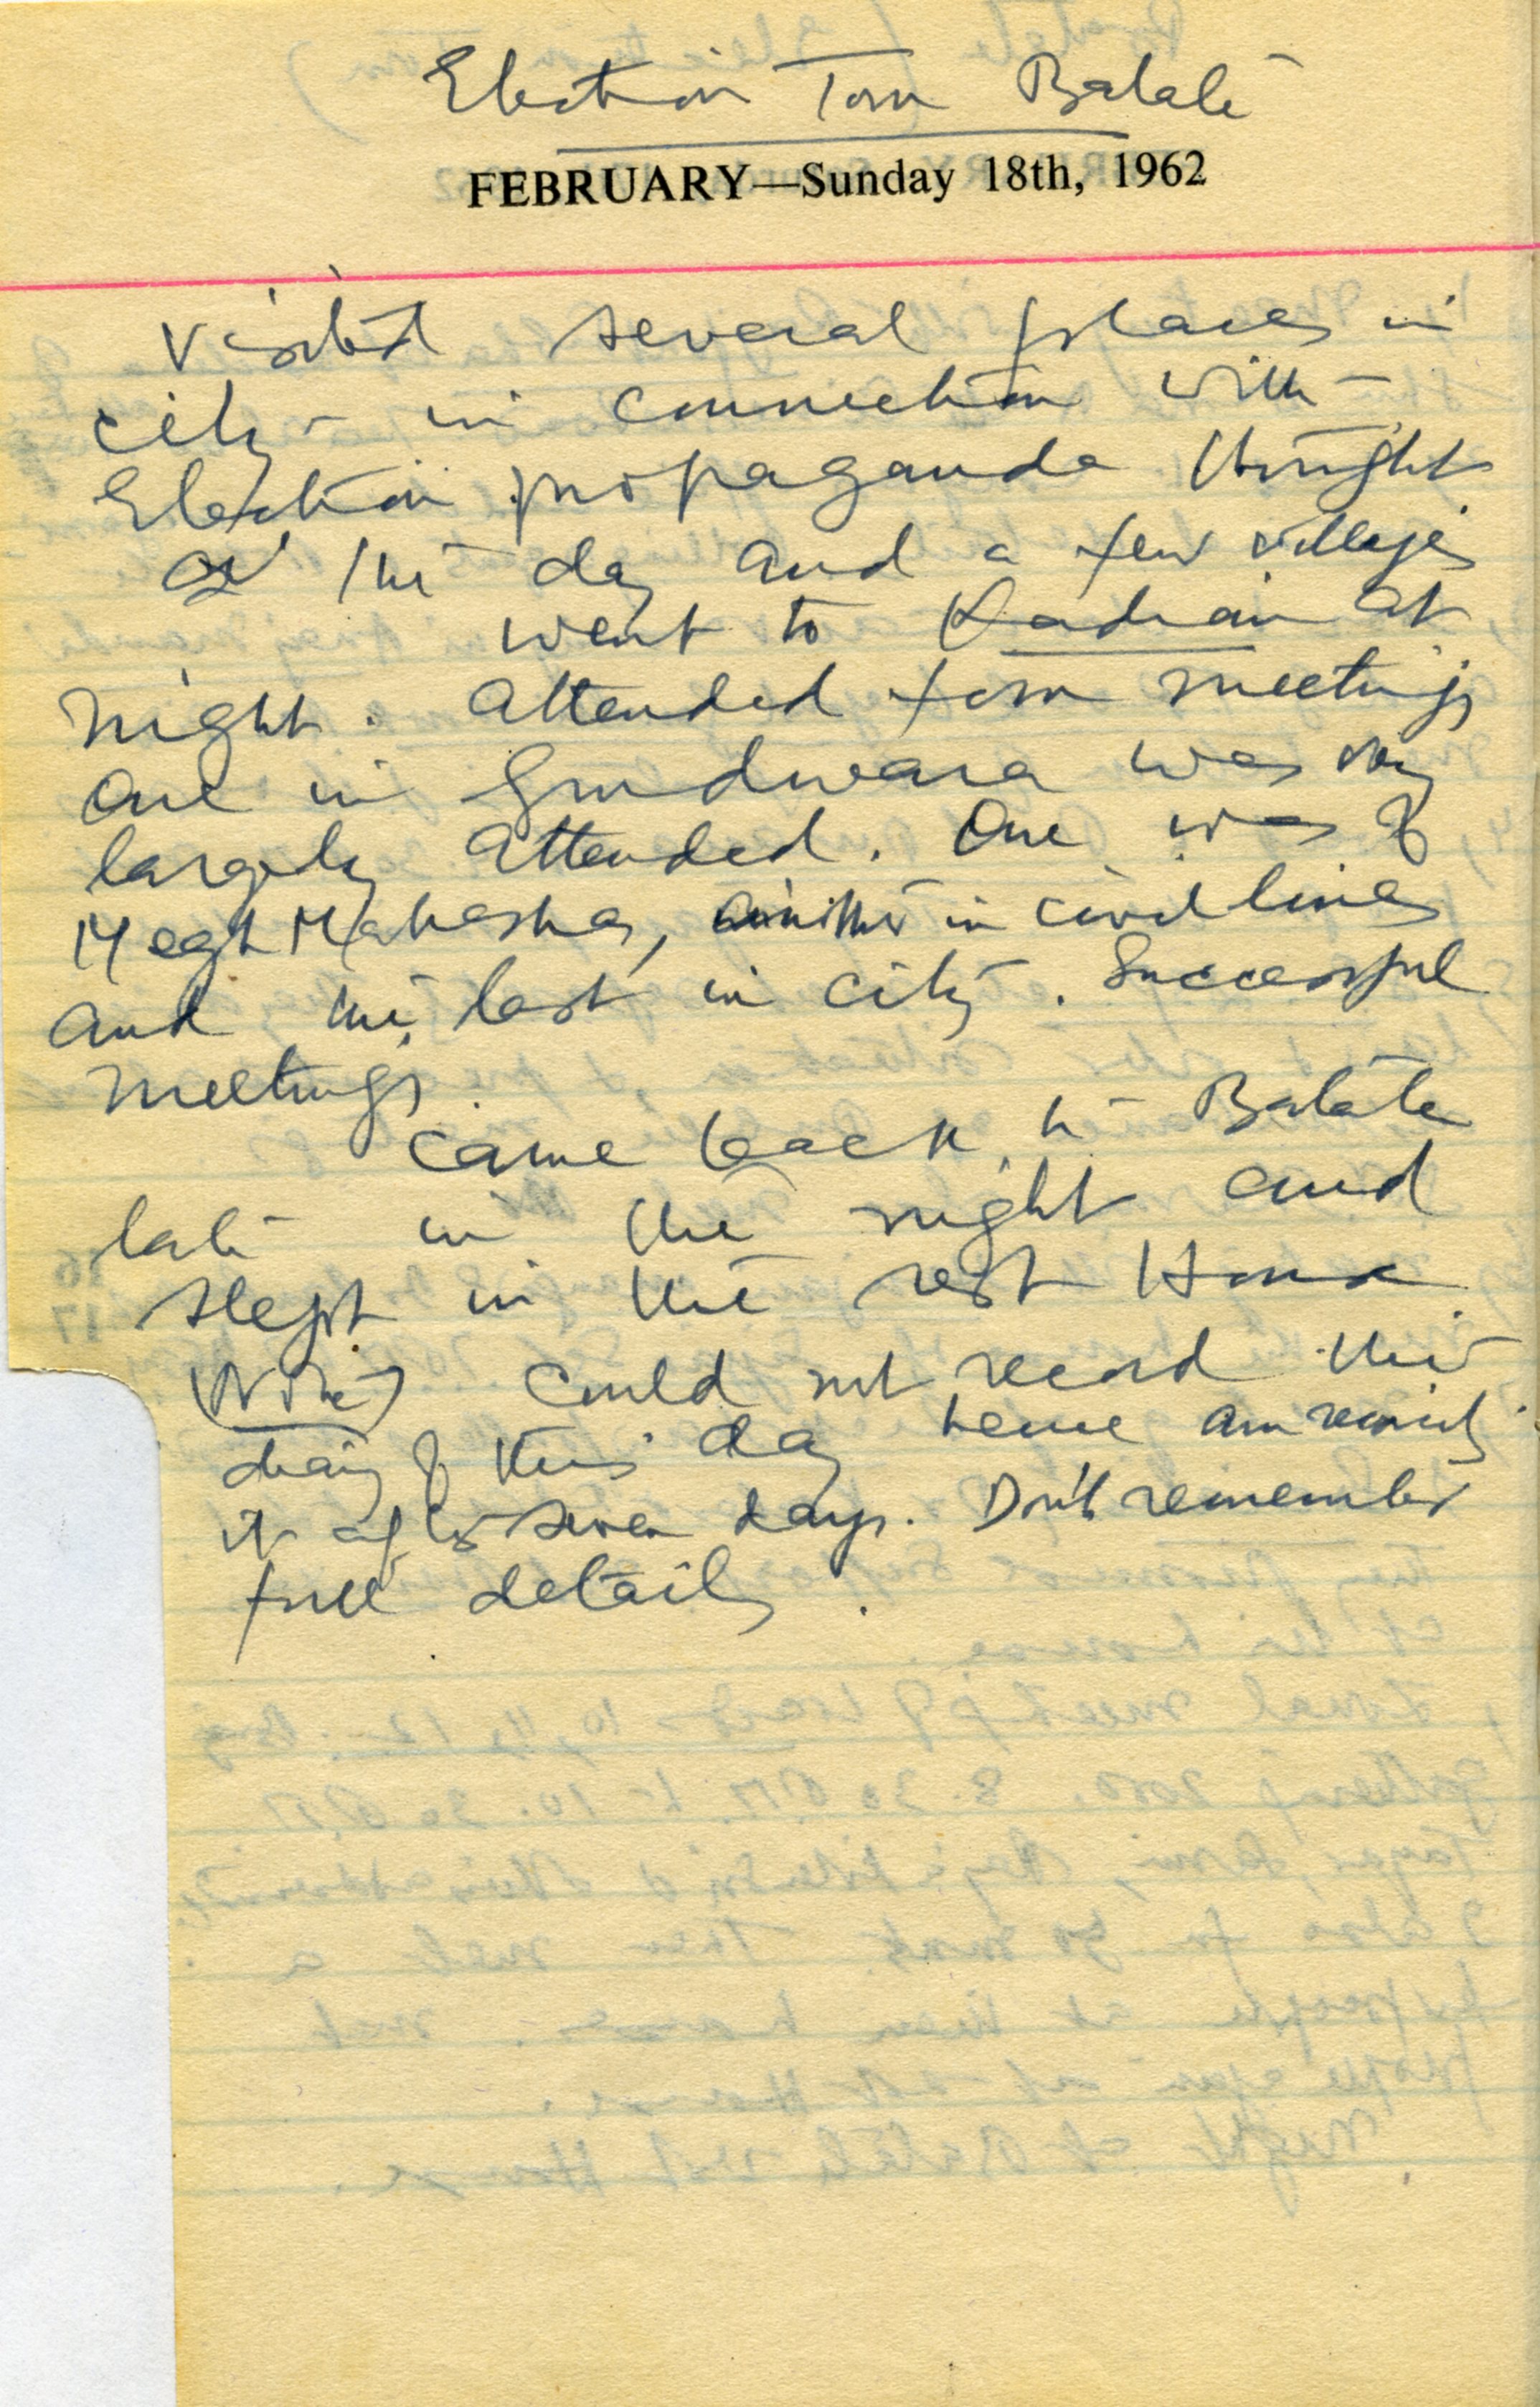 Election Tour Batala
FEBRUARY—Sunday 18th, 1962
Visited several places in
city in connection with
Election propaganda throught
of the day and a few villages
went to Kadian at
night. Attended four meetings
One in Gurudwara was very
largely attended. One was of
Megh Mahashas, another in civil lines
and the last in city. Successful
meetings.
Came back to Batala
late in the night and
slept in the rest House
(Note) Could not record this
diary of this day hence am
it after seven days. Don't remember
full details.